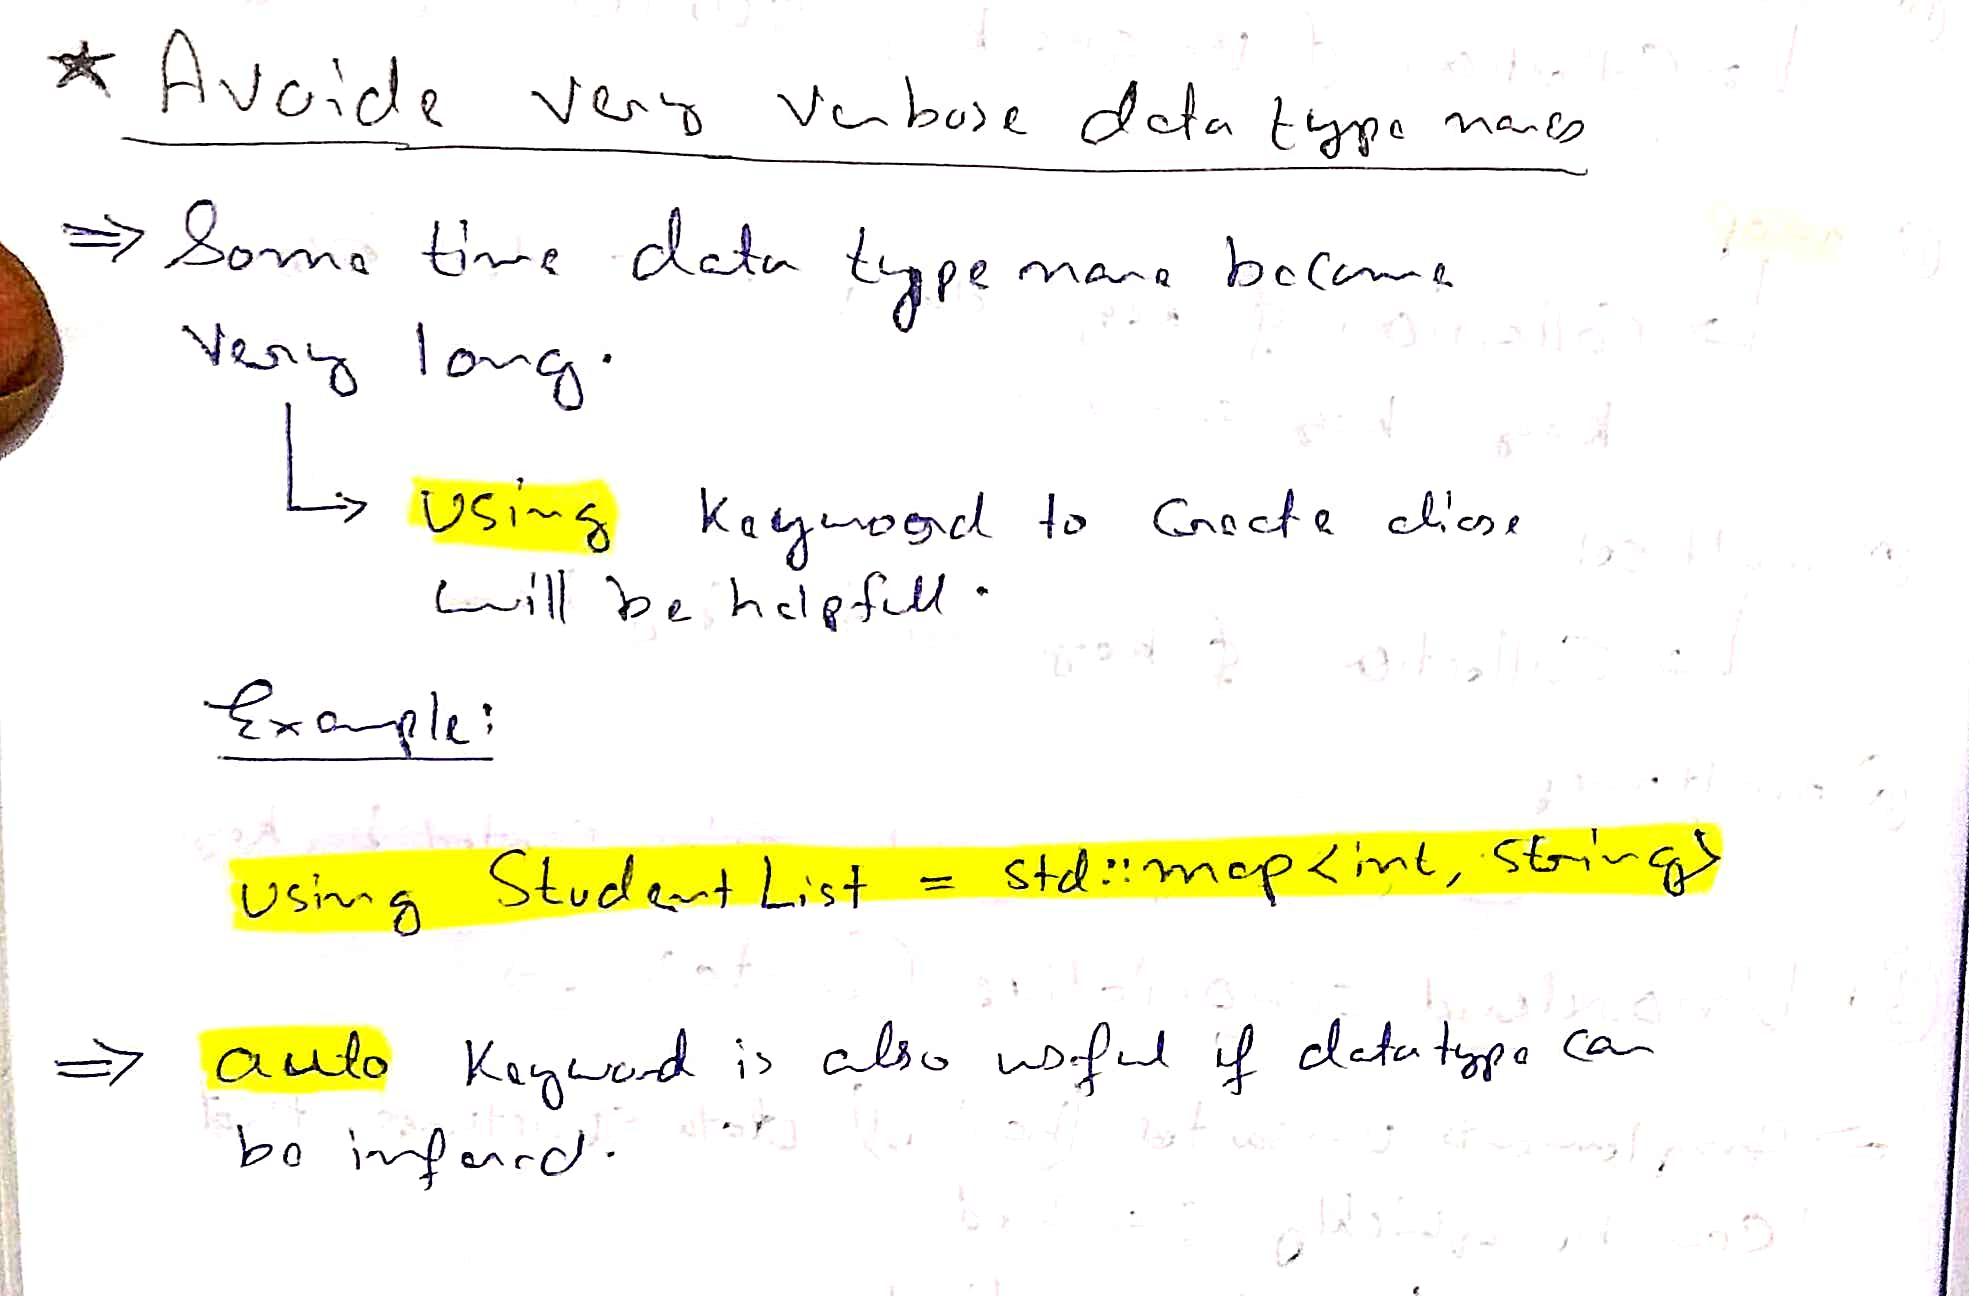 * Avoide very verbose data type names
⇒ Some time data type name become
very long.
↳ Using Keyword to Create aliase
will be helpfull.
Example:
using StudentList = std::map<int, string>
⇒ auto Keyword is also useful if data type can
be inferrd.